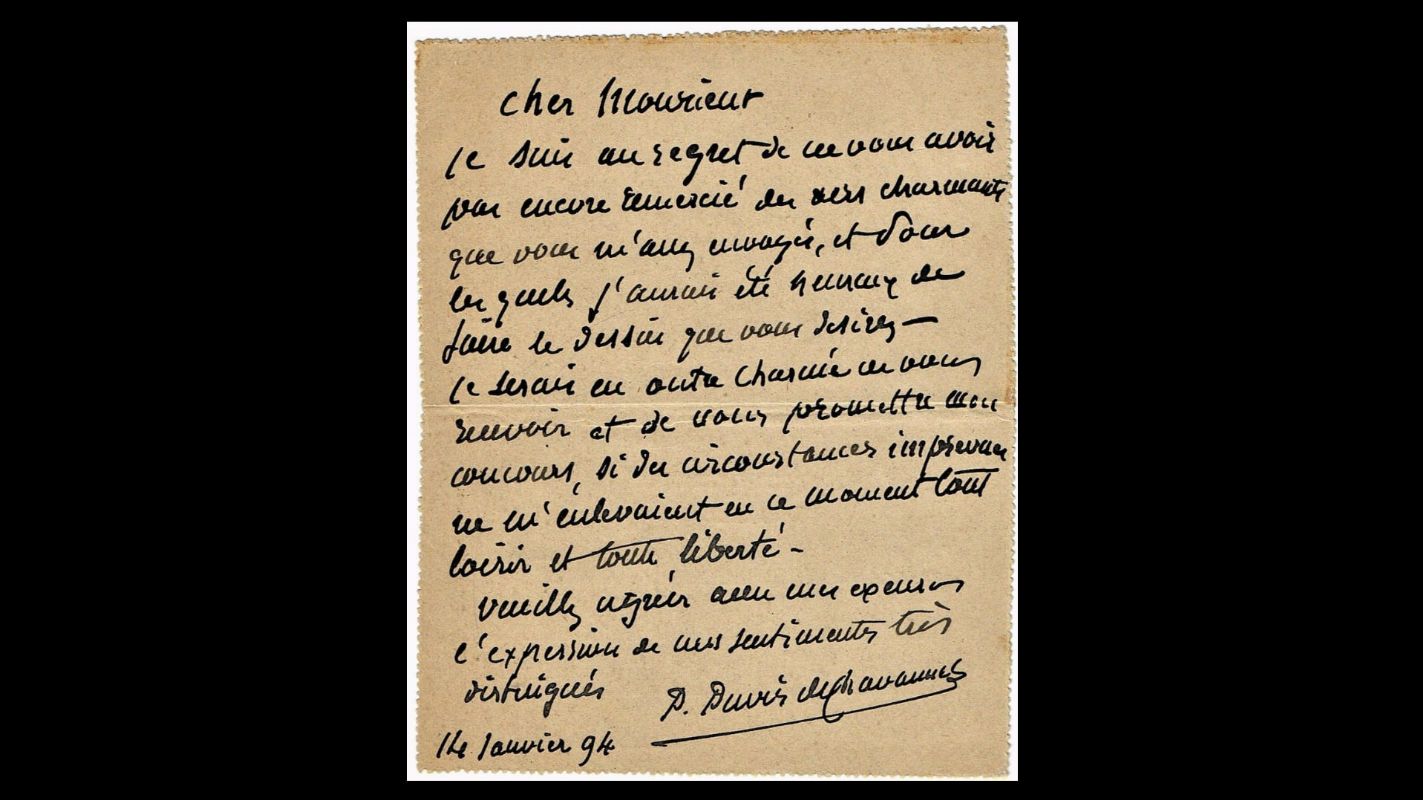 Cher Monsieur
Je suis au regret de ne vous avoir
pas encore remercié des vers charmants
que vous m'avez envoyés, et pour
lesquels j'aurais été heureux de
faire le dessin que vous désirez —
Je serais en outre charmé de vous
recevoir et de vous promettre mon
concours, si des circonstances imprévues
ne m'enlevaient en ce moment tout
loisir et toute liberté —
Veuillez agréer avec mes excuses
l'expression de mes sentiments très
distingués
P. Puvis de Chavannes
14 Janvier 94